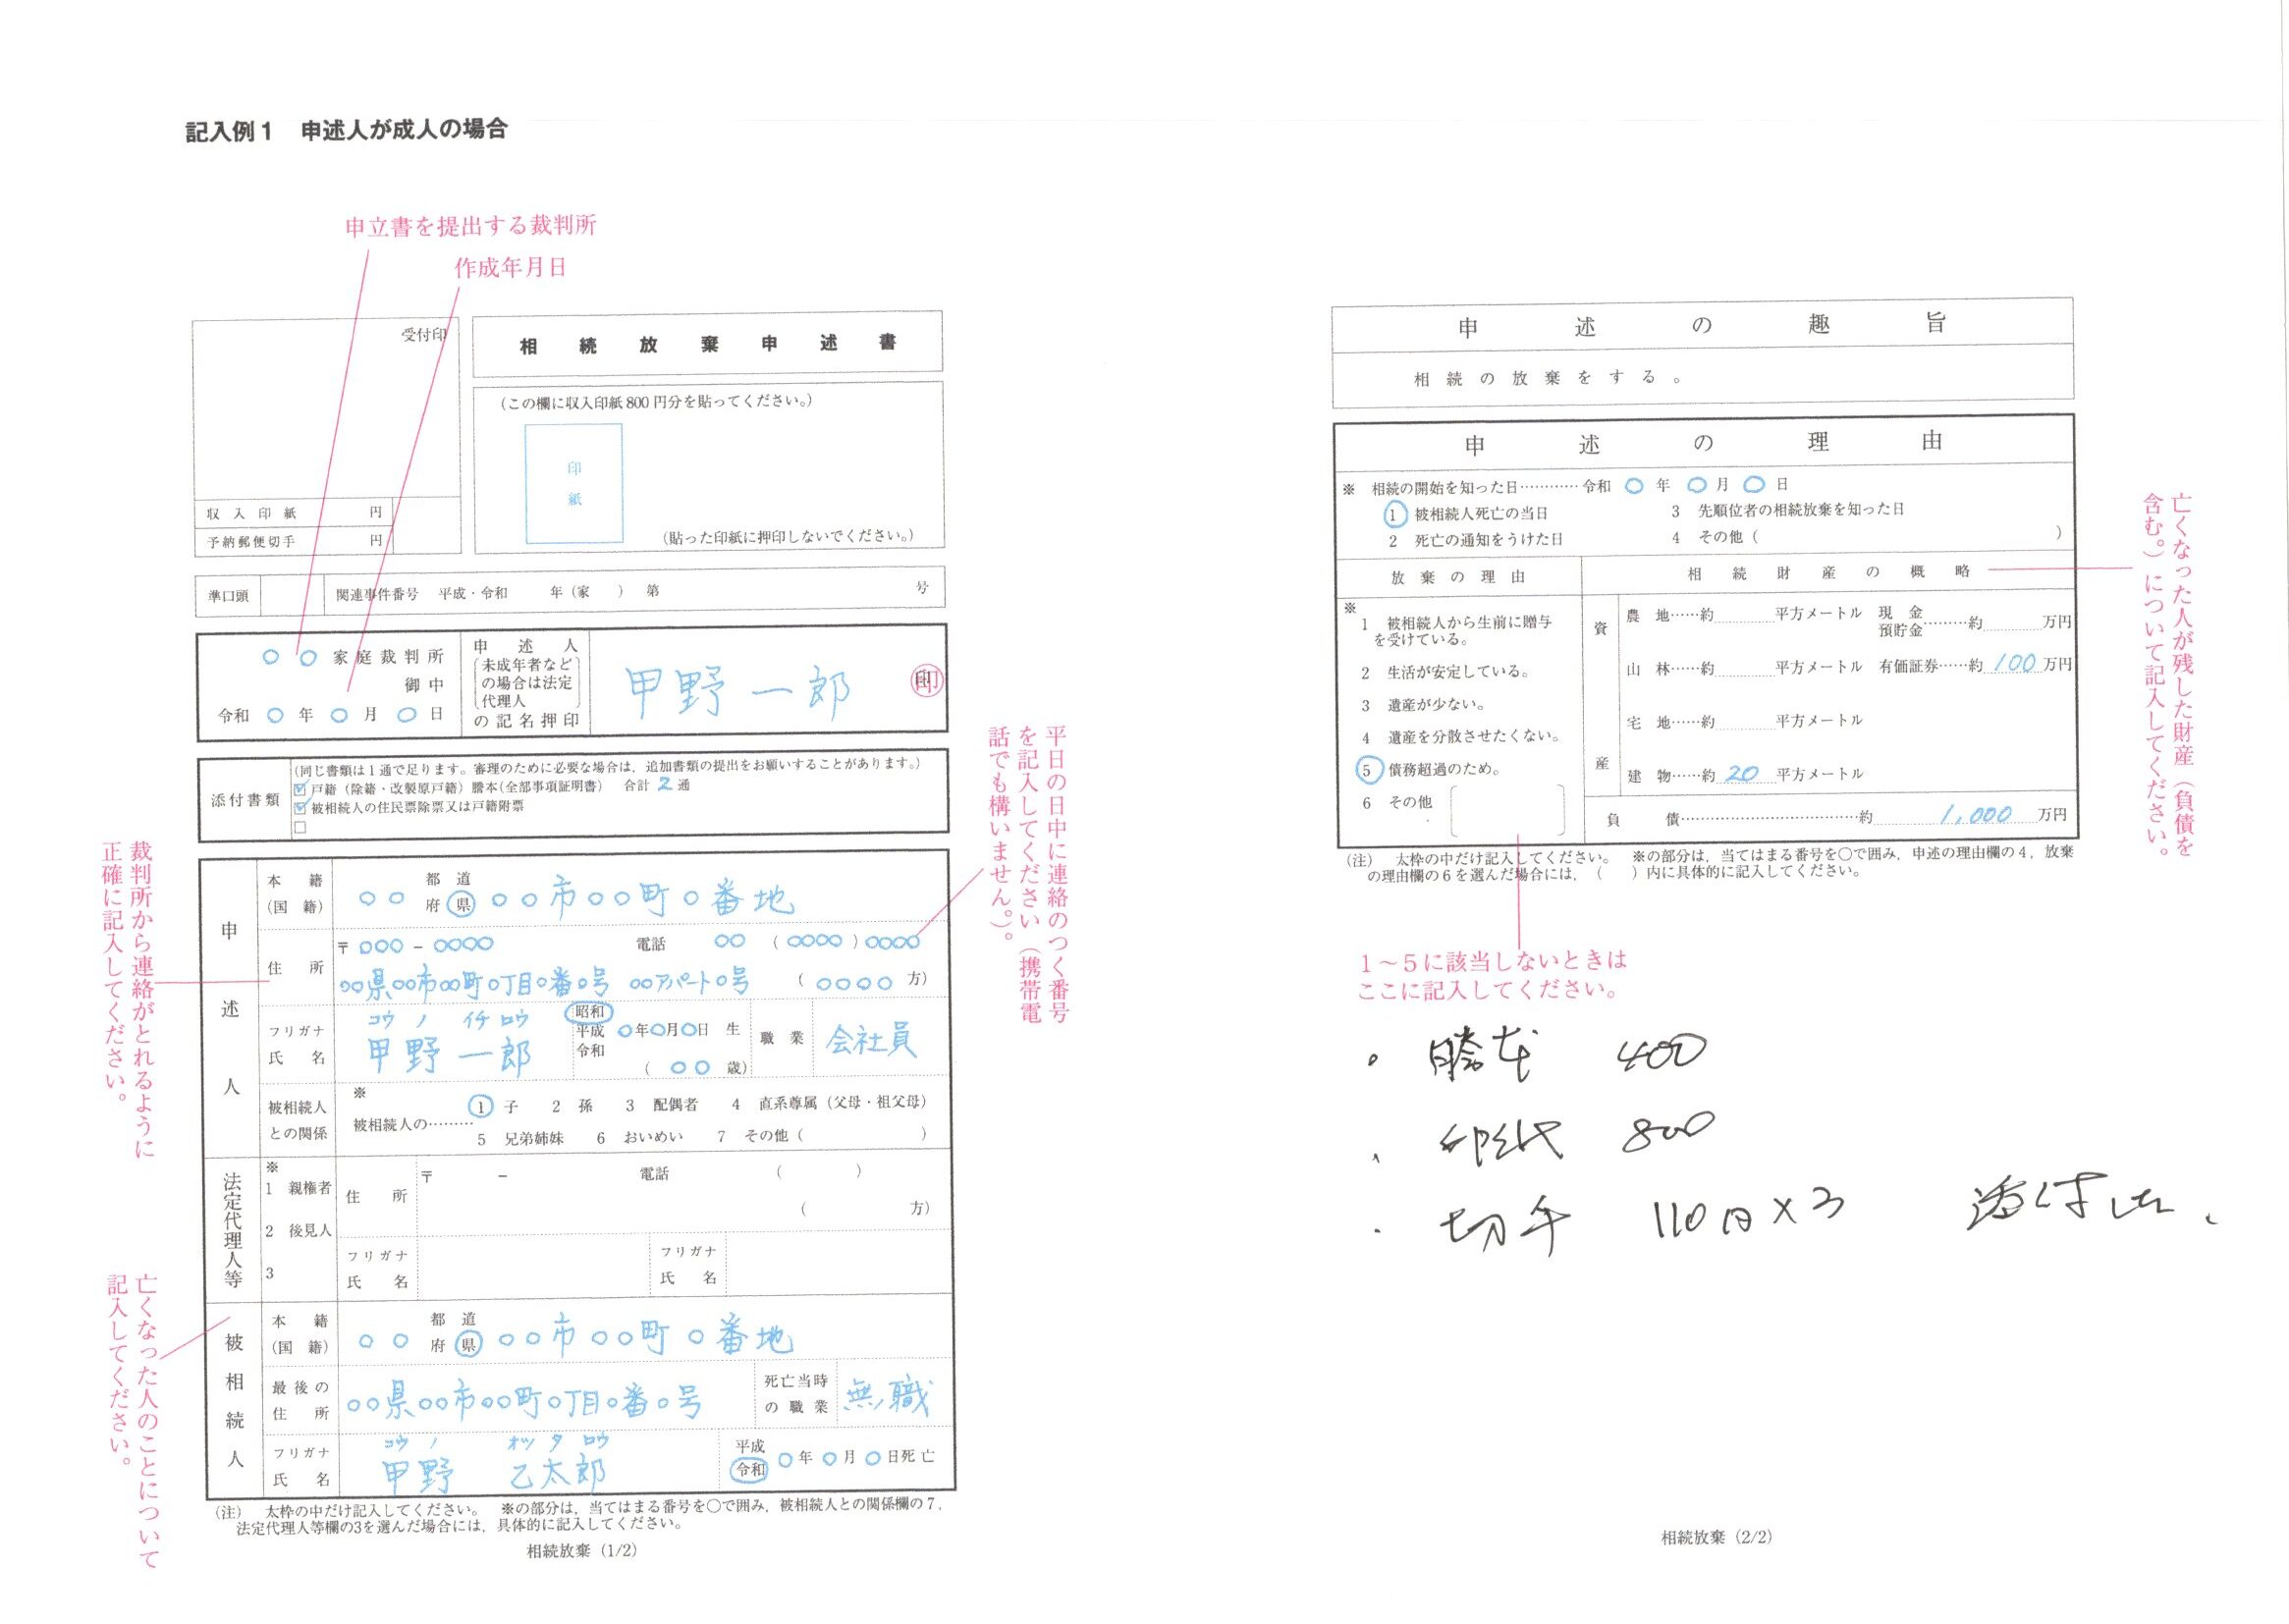 記入例1　申述人が成人の場合
申立書を提出する裁判所
作成年月日
受付印
収入印紙　円
予納郵便切手　円
相続放棄申述書
(この欄に収入印紙800円分を貼ってください。)
印
紙
(貼った印紙に押印しないでください。)
準口頭
関連事件番号　平成・令和　年(家　)第　号
○○家庭裁判所
御中
令和○年○月○日
申述人
未成年者など
の場合は法定
代理人
の記名押印
甲野一郎　印
添付書類
(同じ書類は1通で足ります。審理のために必要な場合は，追加書類の提出をお願いすることがあります。)
☑戸籍(除籍・改製原戸籍)謄本(全部事項証明書)　合計2通
☑被相続人の住民票除票又は戸籍附票
□
申述人
本籍
(国籍)
○○　都道府県　○○市○○町○番地
住所
〒○○○-○○○○　電話　○○(○○○○)○○○○
○○県○○市○○町○丁目○番○号　○○アパート○号　(○○○○方)
フリガナ　コウノ　イチロウ
氏名　甲野一郎
昭和
平成　○年○月○日　生
令和
(○○歳)
職業　会社員
被相続人
との関係
※
被相続人の………
1　子　2　孫　3　配偶者　4　直系尊属(父母・祖父母)
5　兄弟姉妹　6　おいめい　7　その他(　)
法定代理人等
※
1　親権者
2　後見人
3
住所
〒　-　電話　(　)
(　方)
フリガナ
氏名
フリガナ
氏名
被相続人
本籍
(国籍)
○○　都道府県　○○市○○町○番地
最後の
住所
○○県○○市○○町○丁目○番○号
死亡当時
の職業
無職
フリガナ　コウノ　オツタロウ
氏名　甲野　乙太郎
平成
令和　○年○月○日死亡
(注)　太枠の中だけ記入してください。　※の部分は，当てはまる番号を○で囲み，被相続人との関係欄の7，
法定代理人等欄の3を選んだ場合には，具体的に記入してください。
相続放棄(1/2)
裁判所から連絡がとれるように
正確に記入してください。
亡くなった人のことについて
記入してください。
平日の日中に連絡のつく番号
を記入してください(携帯電
話でも構いません。)。
申述の趣旨
相続の放棄をする。
申述の理由
※　相続の開始を知った日…………令和○年○月○日
1　被相続人死亡の当日　3　先順位者の相続放棄を知った日
2　死亡の通知をうけた日　4　その他(　)
放棄の理由
相続財産の概略
※
1　被相続人から生前に贈与
を受けている。
2　生活が安定している。
3　遺産が少ない。
4　遺産を分散させたくない。
5　債務超過のため。
6　その他
資産
農地……約　平方メートル　現金
預貯金………約　万円
山林……約　平方メートル　有価証券……約100万円
宅地……約　平方メートル
建物……約20平方メートル
負債……………………………約1,000万円
(注)　太枠の中だけ記入してください。　※の部分は，当てはまる番号を○で囲み，申述の理由欄の4，放棄
の理由欄の6を選んだ場合には，(　)内に具体的に記入してください。
亡くなった人が残した財産(負債を
含む。)について記入してください。
1～5に該当しないときは
ここに記入してください。
・謄本　400
・印紙　800
・切手　110円×3
相続放棄(2/2)